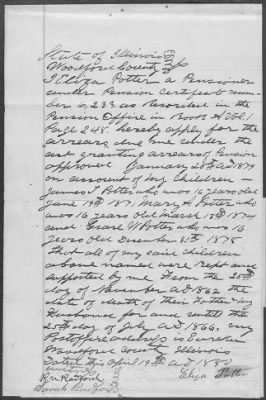 State of Illinois
Woodford County } ss
I Eliza Potter a Pensioner
under Pension certificate num-
ber 6,233 as Recorded in the
Pension Office in Book A Vol 1
Page 248. hereby apply for the
arrears due me under the
act granting arrears of Pension
approved January 25th A.D. 1879
on account of my Children
James T Potter who was 16 years old
June 19th 1871 Mary A Potter who
was 16 years old March 13th 1874
and Grace W Potter who was 16
years old December 8th 1878
That all of my said children
above named were kept and
supported by me From the 25th
day of November A.D. 1862 the
date of death of their Father my
Husband for and until the
25th day of July A.D. 1866. my
Postoffice address is Eureka
Woodford County Illinois
Dated this April 19th A.D. 1880
Eliza Potter
R.N. Radford
Sarah